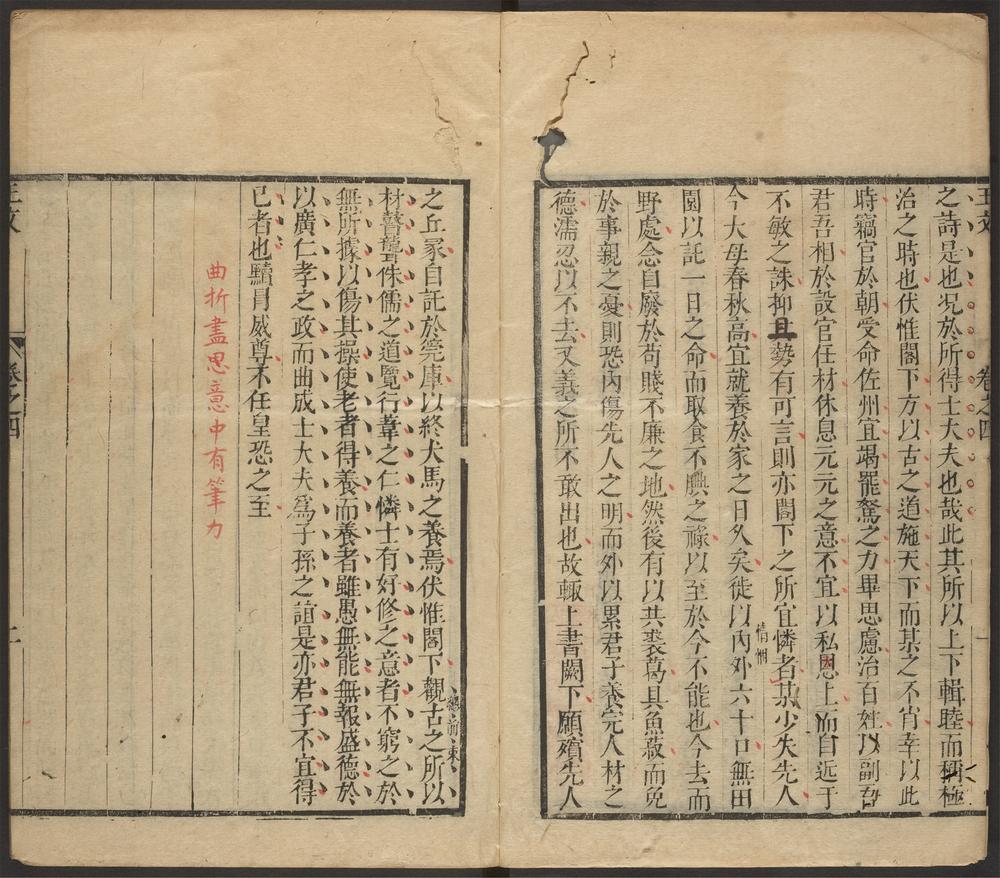 王文 卷之四
之詩是也況於所得士大夫也哉此其所以上下輯睦而稱極
治之時也伏惟閣下方以古之道施天下而某之不肖幸以此
時竊官於朝受命佐州宜竭罷駑之力畢思慮治百姓以副吾
君吾相於設官任材休息元元之意不宜以私恩上而自近于
不敏之誅抑且勢有可言則亦閣下之所宜憐者某少失先人
情惻
今大母春秋高宜就養於家之日久矣徒以內外六十口無田
園以託一日之命而取食不腆之祿以至於今不能也今去而
野處念自廢於苟賤不廉之地然後有以共裘葛具魚菽而免
於事親之憂則恐內傷先人之明而外以累君子養完人材之
德濡忍以不去又義之所不敢出也故輒上書闕下願殯先人
之丘冢自託於筦庫以終犬馬之養焉伏惟閣下觀古之所以
材瞽聾侏儒之道覽行葦之仁憐士有好修之意者不窮之於
無所據以傷其操使老者得養而養者雖愚無能無報盛德於
以廣仁孝之政而曲成士大夫爲子孫之誼是亦君子不宜得
已者也黷冒威尊不任皇恐之至
曲折盡思意中有筆力
王文 卷之四 二